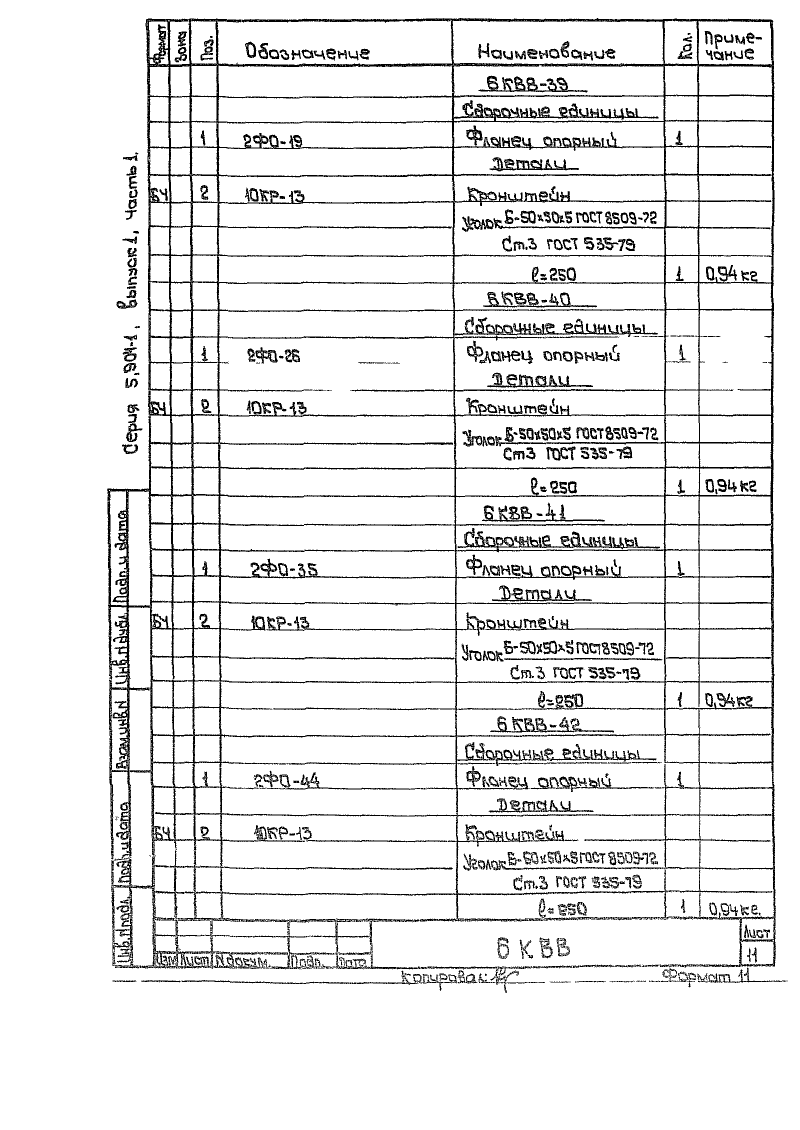 Формат Зона Поз. Обозначение Наименование Кол. Приме-
чание
6КВВ-39
Сборочные единицы
1 2ФО-19 Фланец опорный 1
Детали
БЧ 2 10КР-13 Кронштейн
Уголок Б-50х50х5 ГОСТ 8509-72
Ст.3 ГОСТ 535-79
ℓ=250 1 0,94 кг
6КВВ-40
Сборочные единицы
1 2ФО-26 Фланец опорный 1
Детали
БЧ 2 10КР-13 Кронштейн
Уголок Б-50х50х5 ГОСТ 8509-72
Ст3 ГОСТ 535-79
ℓ=250 1 0,94 кг
6КВВ-41
Сборочные единицы
1 2ФО-35 Фланец опорный 1
Детали
БЧ 2 10КР-13 Кронштейн
Уголок Б-50х50х5 ГОСТ 8509-72
Ст.3 ГОСТ 535-79
ℓ=250 1 0,94 кг
6КВВ-42
Сборочные единицы
1 2ФО-44 Фланец опорный 1
Детали
БЧ 2 10КР-13 Кронштейн
Уголок Б-50х50х5 ГОСТ 8509-72
Ст.3 ГОСТ 535-79
ℓ=250 1 0,94 кг.
Серия 5.904-1, выпуск 1, часть 1.
Подп. и дата
Инв. N дубл.
Взам. инв. N
Подп. и дата
Инв. N подл.
Изм Лист N докум. Подп. Дата
6 КВВ
Лист
11
Копировал:
Формат 11